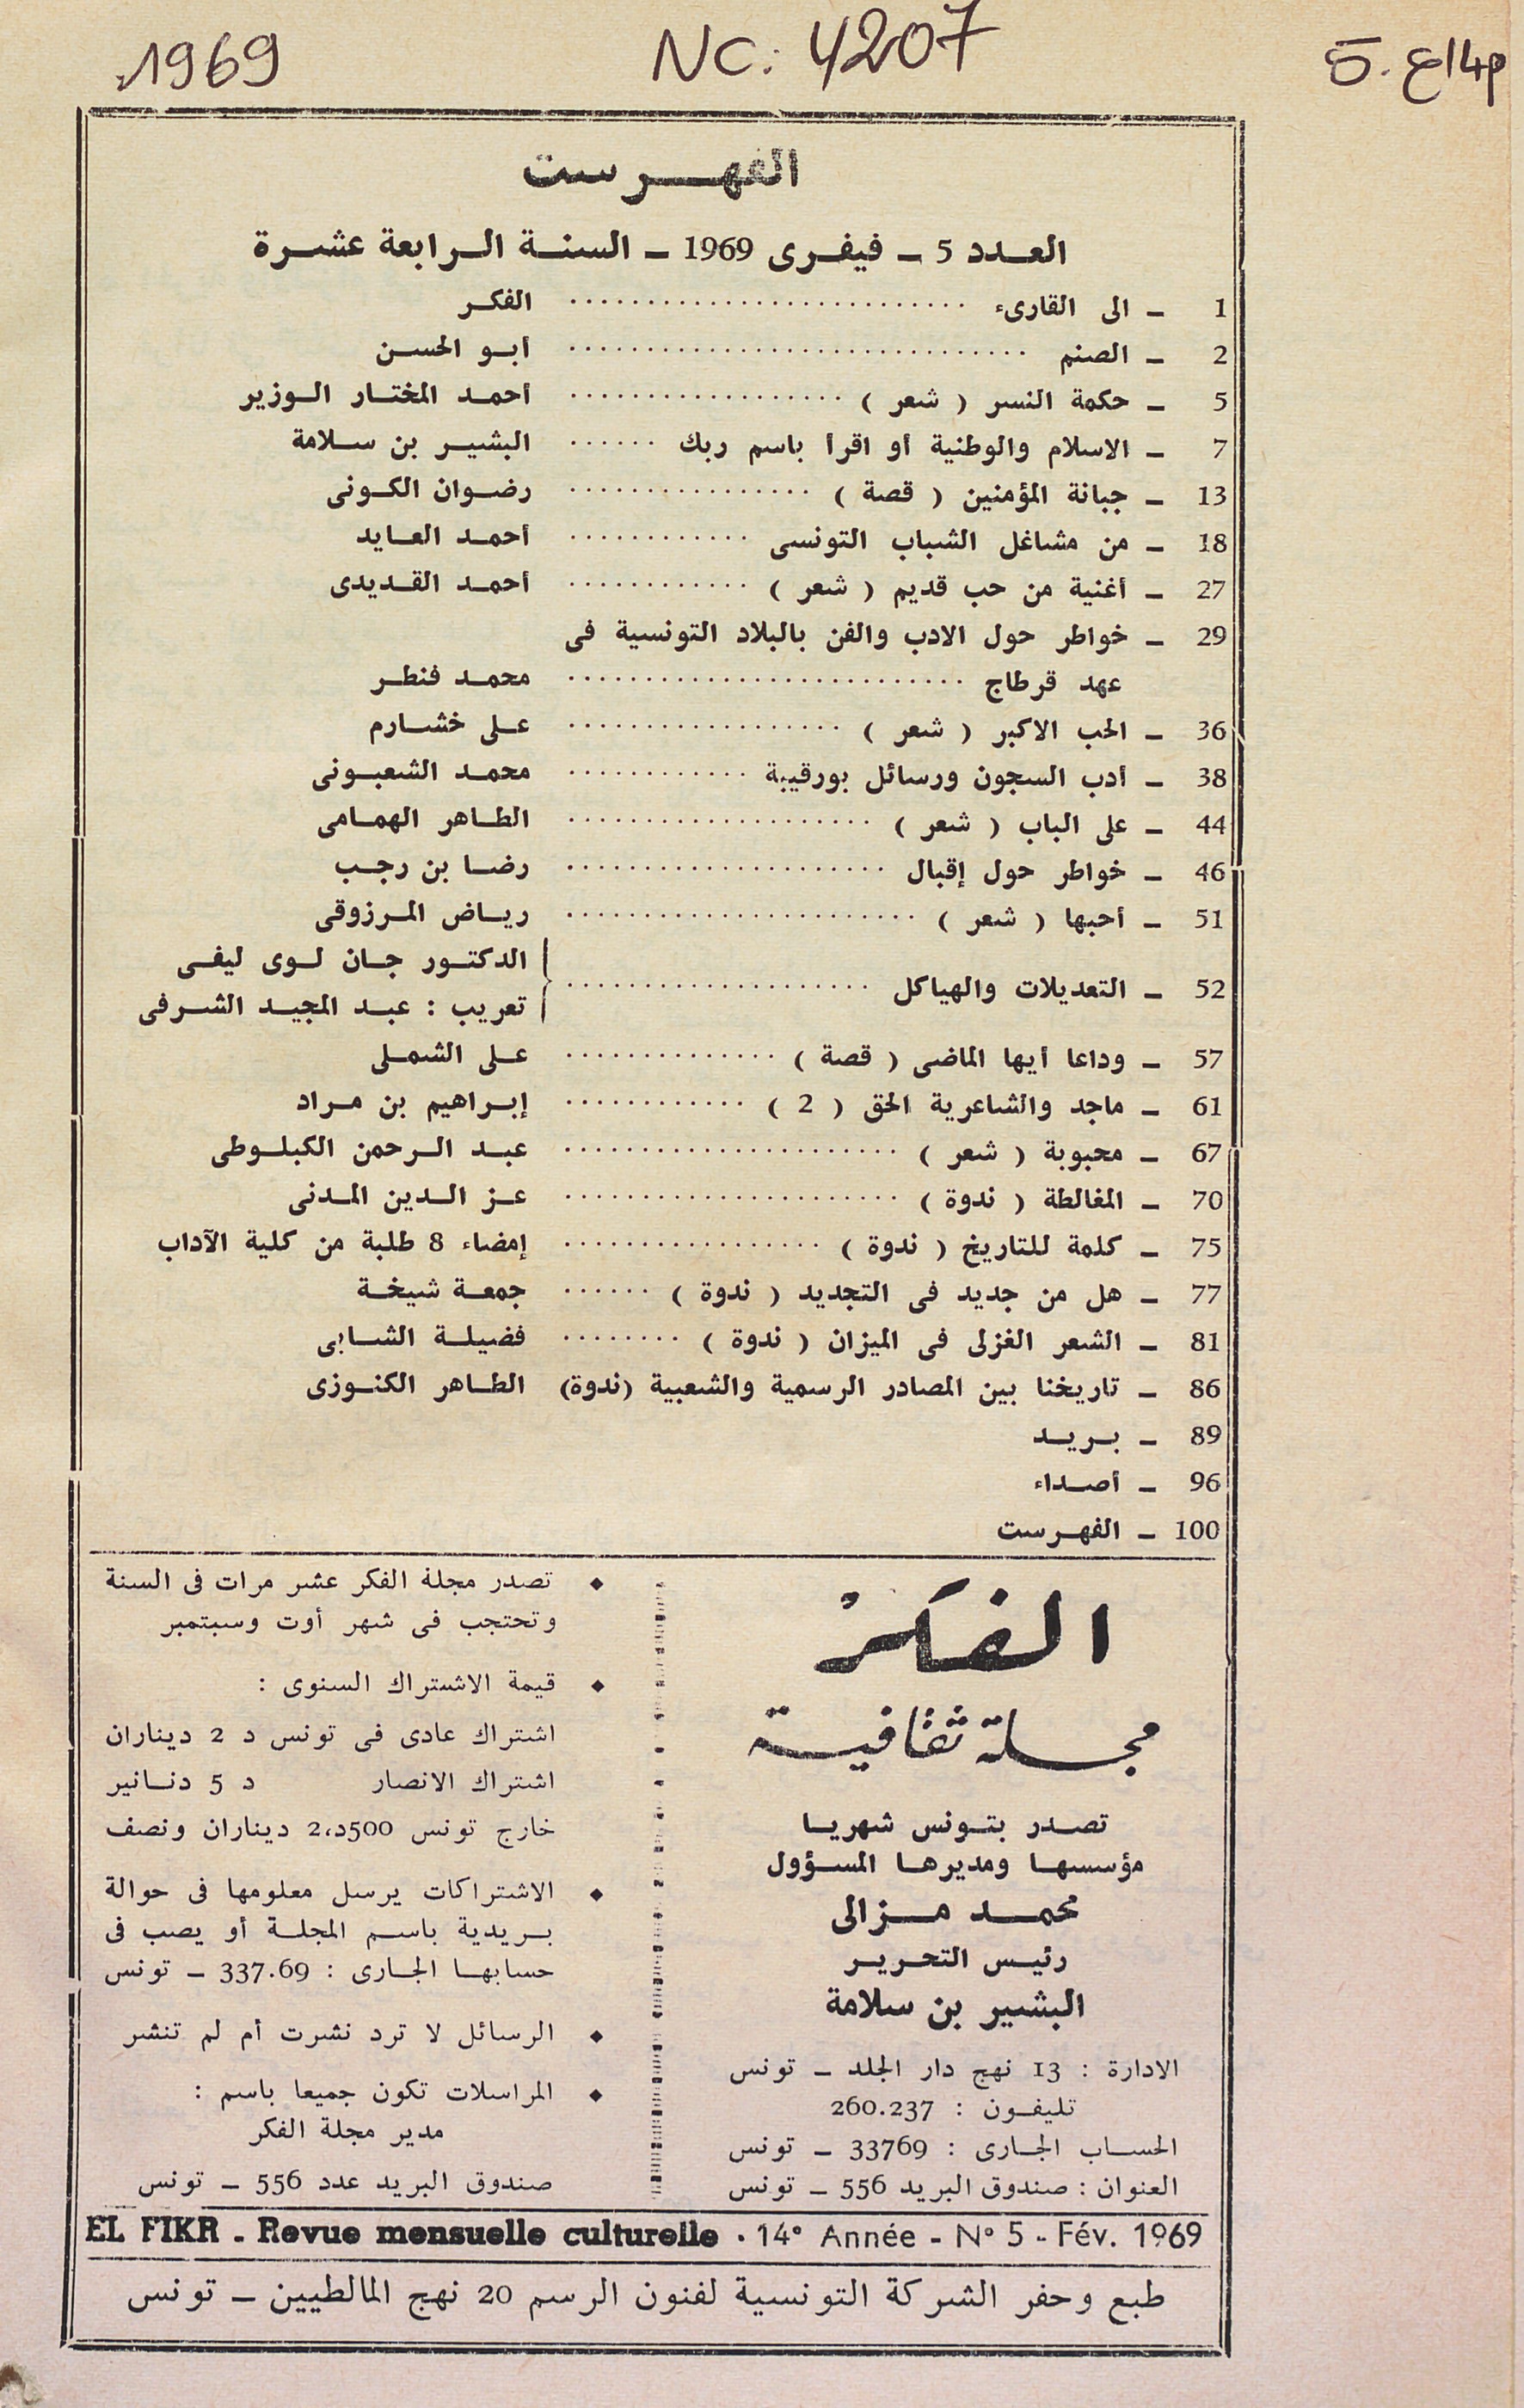 1969
NC: 4207
الفهـــرست
العـدد 5 ـ فيفـرى 1969 ـ السنـة الـرابعة عشـرة
1 ـ الى القارىء .......................... الفكـر
2 ـ الصنم .............................. أبـو الحسـن
5 ـ حكمة النسر ( شعر ) .................. أحمـد المختـار الـوزير
7 ـ الاسلام والوطنية أو اقرأ باسم ربك ...... البشيـر بن سـلامة
13 ـ جبانة المؤمنين ( قصة ) ................ رضـوان الكـونى
18 ـ من مشاغل الشباب التونسى ............ أحمـد العـايد
27 ـ أغنية من حب قديم ( شعر ) ............ أحمـد القـديدى
29 ـ خواطر حول الادب والفن بالبلاد التونسية فى
عهد قرطاج .......................... محمـد فنطـر
36 ـ الحب الاكبر ( شعر ) .................. عـلى خشـارم
38 ـ أدب السجون ورسائل بورقيبة ............ محمـد الشعبـونى
44 ـ على الباب ( شعر ) .................... الطـاهر الهمـامى
46 ـ خواطر حول إقبال ..................... رضـا بن رجـب
51 ـ أحبها ( شعر ) ....................... ريـاض المـرزوقى
52 ـ التعديلات والهياكل .................... الدكتـور جـان لـوى ليفـى
تعريب : عبـد المجيـد الشـرفى
57 ـ وداعا أيها الماضى ( قصة ) .............. عـلى الشمـلى
61 ـ ماجد والشاعرية الحق ( 2 ) ............ إبـراهيم بن مـراد
67 ـ محبوبة ( شعر ) ...................... عبـد الـرحمن الكبلـوطى
70 ـ المغالطة ( ندوة ) ...................... عـز الـدين المـدنى
75 ـ كلمة للتاريخ ( ندوة ) ................. إمضاء 8 طلبة من كلية الآداب
77 ـ هل من جديد فى التجديد ( ندوة ) ...... جمعـة شيخـة
81 ـ الشعر الغزلى فى الميزان ( ندوة ) ........ فضيلـة الشـابى
86 ـ تاريخنا بين المصادر الرسمية والشعبية (ندوة) الطـاهر الكنـوزى
89 ـ بـريـد
96 ـ أصـداء
100 ـ الفهـرست
الفكر
مجلة ثقافية
تصـدر بتـونس شهريـا
مؤسسهـا ومديرهـا المسـؤول
محمـد مـزالى
رئيـس التحـريـر
البشير بن سلامة
الادارة : 13 نهج دار الجلد ـ تونس
تليفـون : 260.237
الحسـاب الجـارى : 33769 ـ تونس
العنوان : صندوق البريد 556 ـ تونس
♦ تصدر مجلة الفكر عشر مرات فى السنة
وتحتجب فى شهر أوت وسبتمبر
♦ قيمة الاشتراك السنوى :
اشتراك عادى فى تونس د 2 ديناران
اشتراك الانصار د 5 دنـانير
خارج تونس 500د،2 ديناران ونصف
♦ الاشتراكات يرسل معلومها فى حوالة
بـريدية باسـم المجلـة أو يصب فى
حسابهـا الجـارى : 337.69 ـ تونس
♦ الرسائل لا ترد نشرت أم لم تنشر
♦ المراسلات تكون جميعا باسم :
مدير مجلة الفكر
صندوق البريد عدد 556 ـ تونس
EL FIKR - Revue mensuelle culturelle . 14° Année - N° 5 - Fév. 1969
طبع وحفر الشركة التونسية لفنون الرسم 20 نهج المالطيين ـ تونس